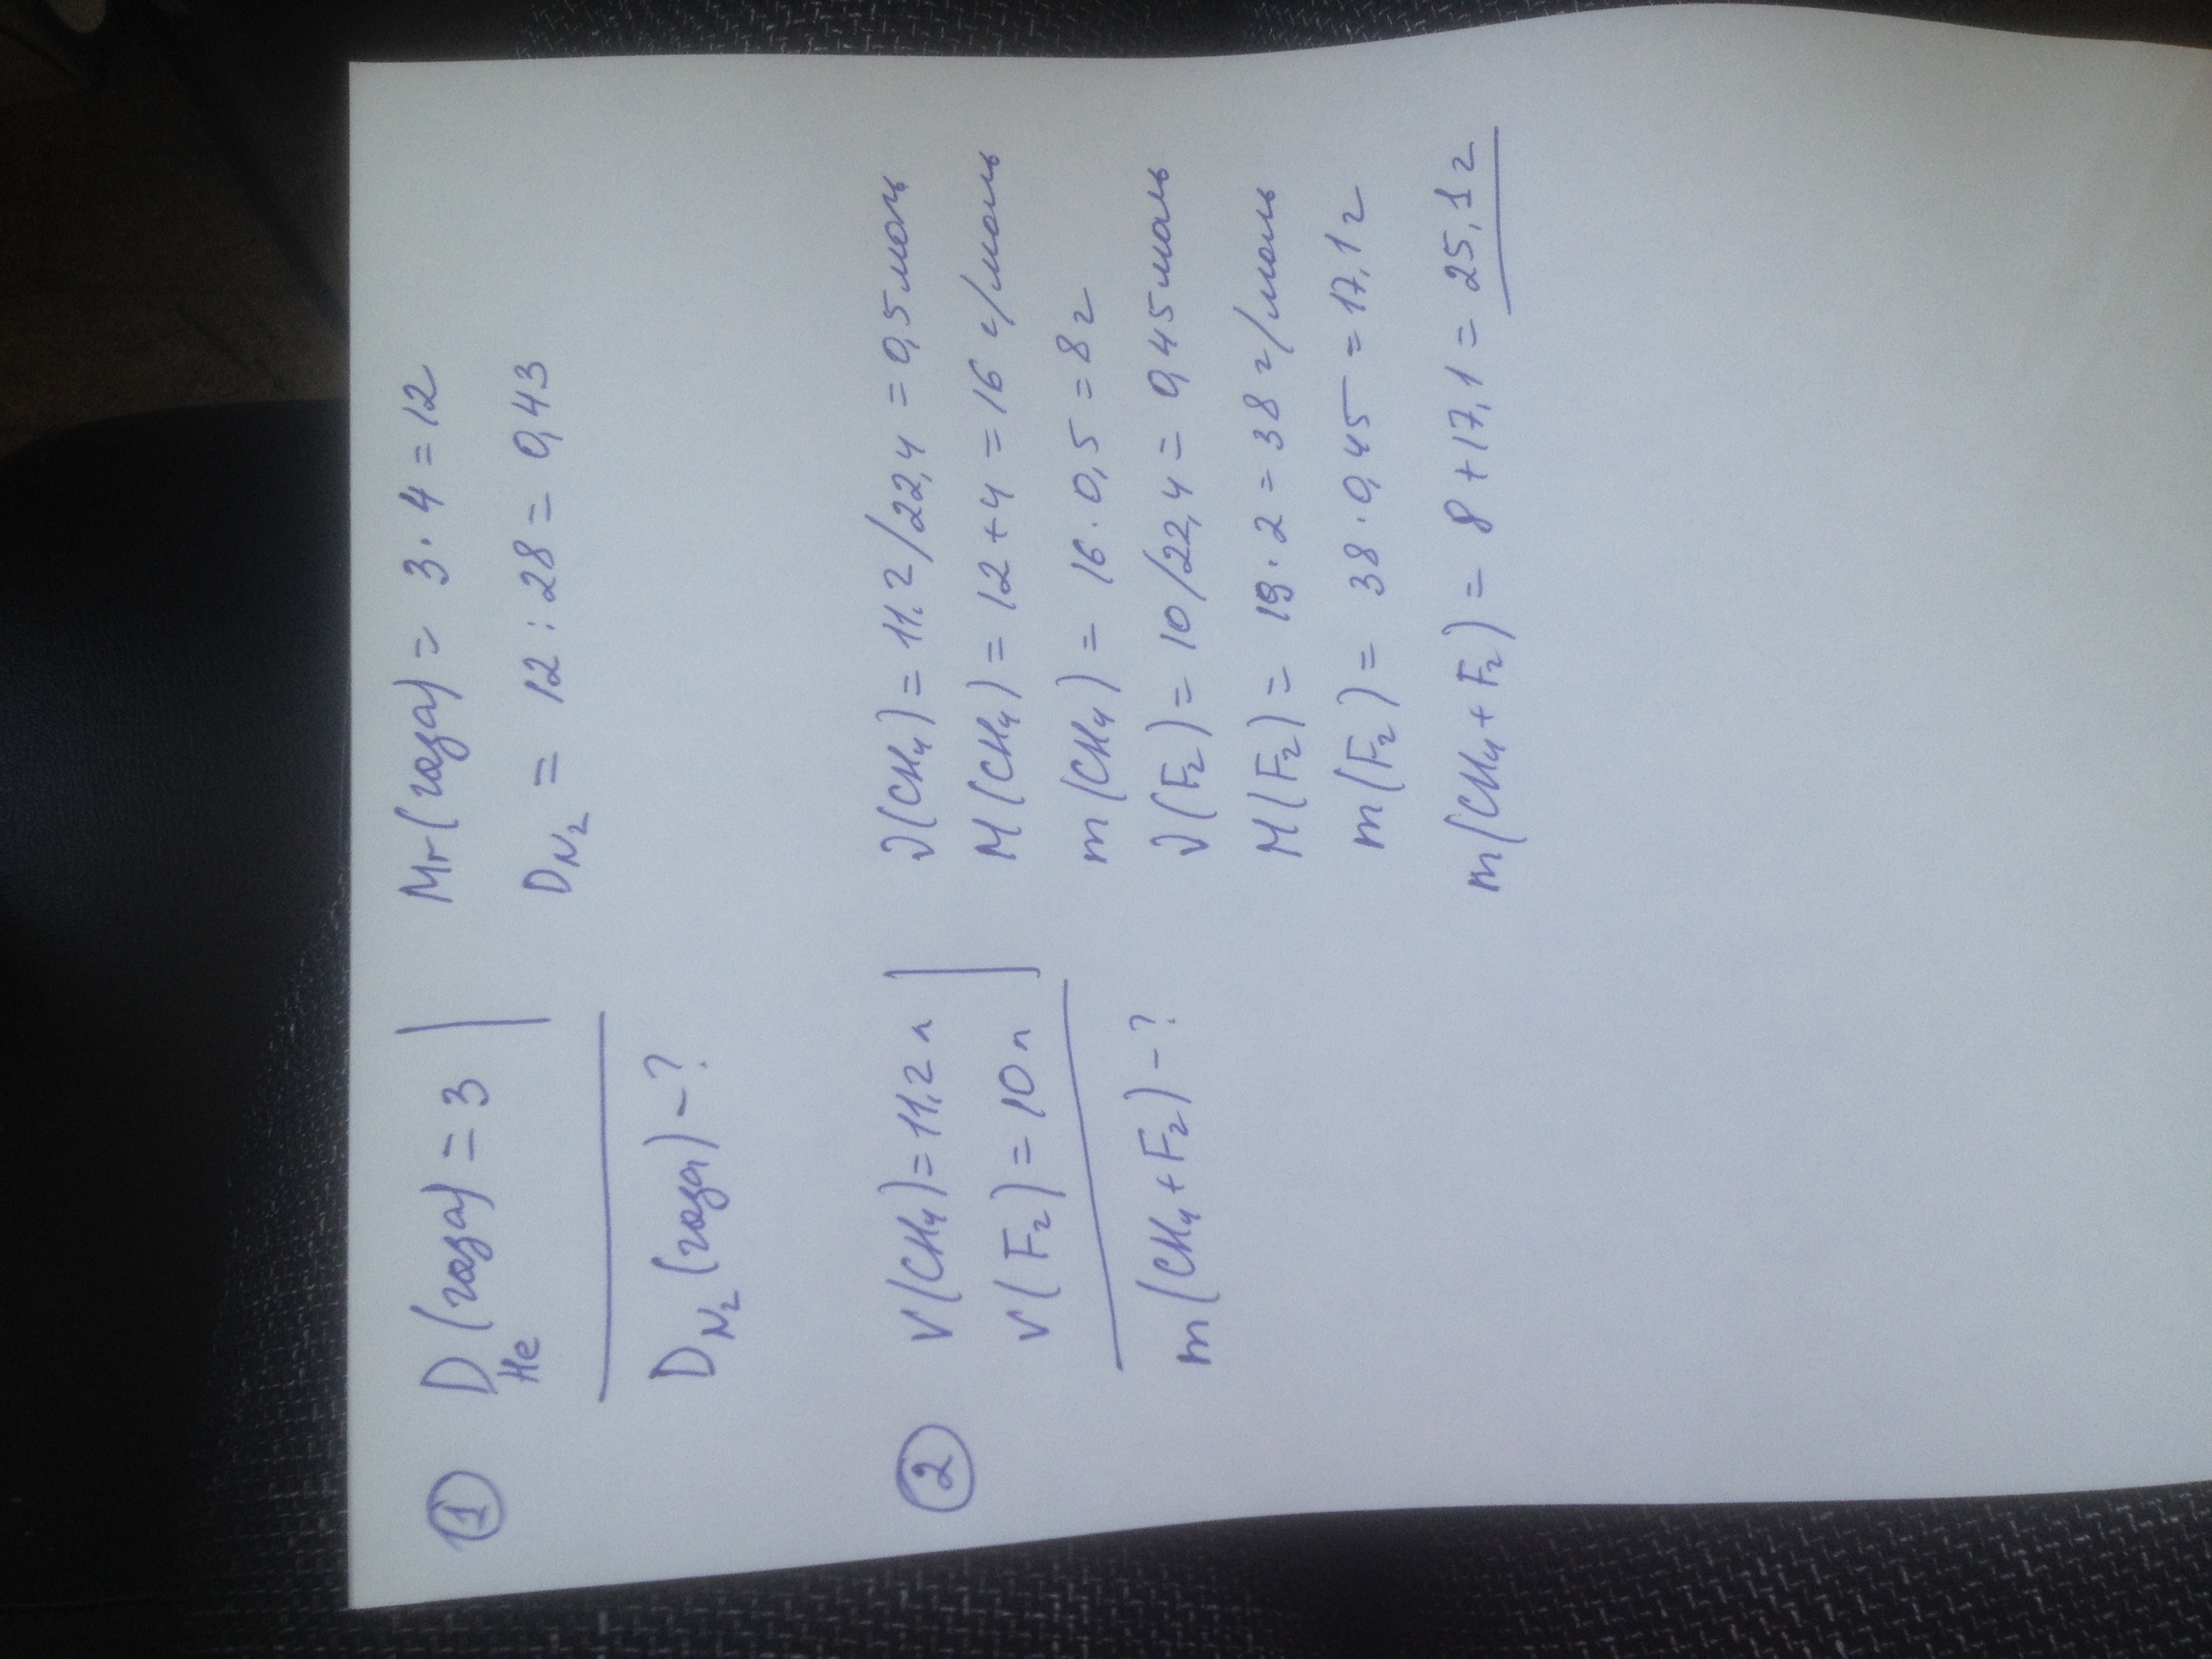 ① D He (газа) = 3
Mr (газа) = 3 · 4 = 12
D N₂ = 12 : 28 = 0,43
D N₂ (газа) - ?
② V(CH₄) = 11,2 л
V(F₂) = 10 л
m(CH₄ + F₂) - ?
ν(CH₄) = 11.2/22,4 = 0,5 моль
M(CH₄) = 12 + 4 = 16 г/моль
m(CH₄) = 16 · 0,5 = 8 г
ν(F₂) = 10/22,4 = 0,45 моль
M(F₂) = 19 · 2 = 38 г/моль
m(F₂) = 38 · 0,45 = 17,1 г
m(CH₄ + F₂) = 8 + 17,1 = 25,1 г